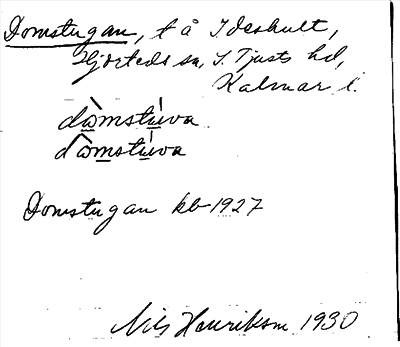 Domstugan, t å Ideshult,
Hjorteds sn, S. Tjusts hd,
Kalmar l.
dὼmstùva
dω̂mstùva
Domstugan kb 1927
Nils Henrikson 1930